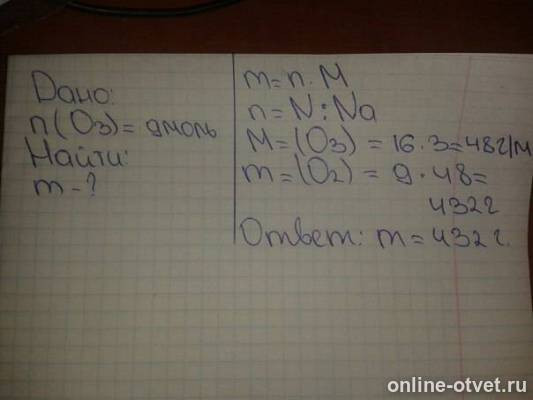 Дано:
n(O3)= 9моль
Найти:
m-?
m=n·M
n=N:Na
M=(O3) = 16·3=48г/м
m=(O2) = 9·48=
432г
Ответ: m=432г.
online-otvet.ru